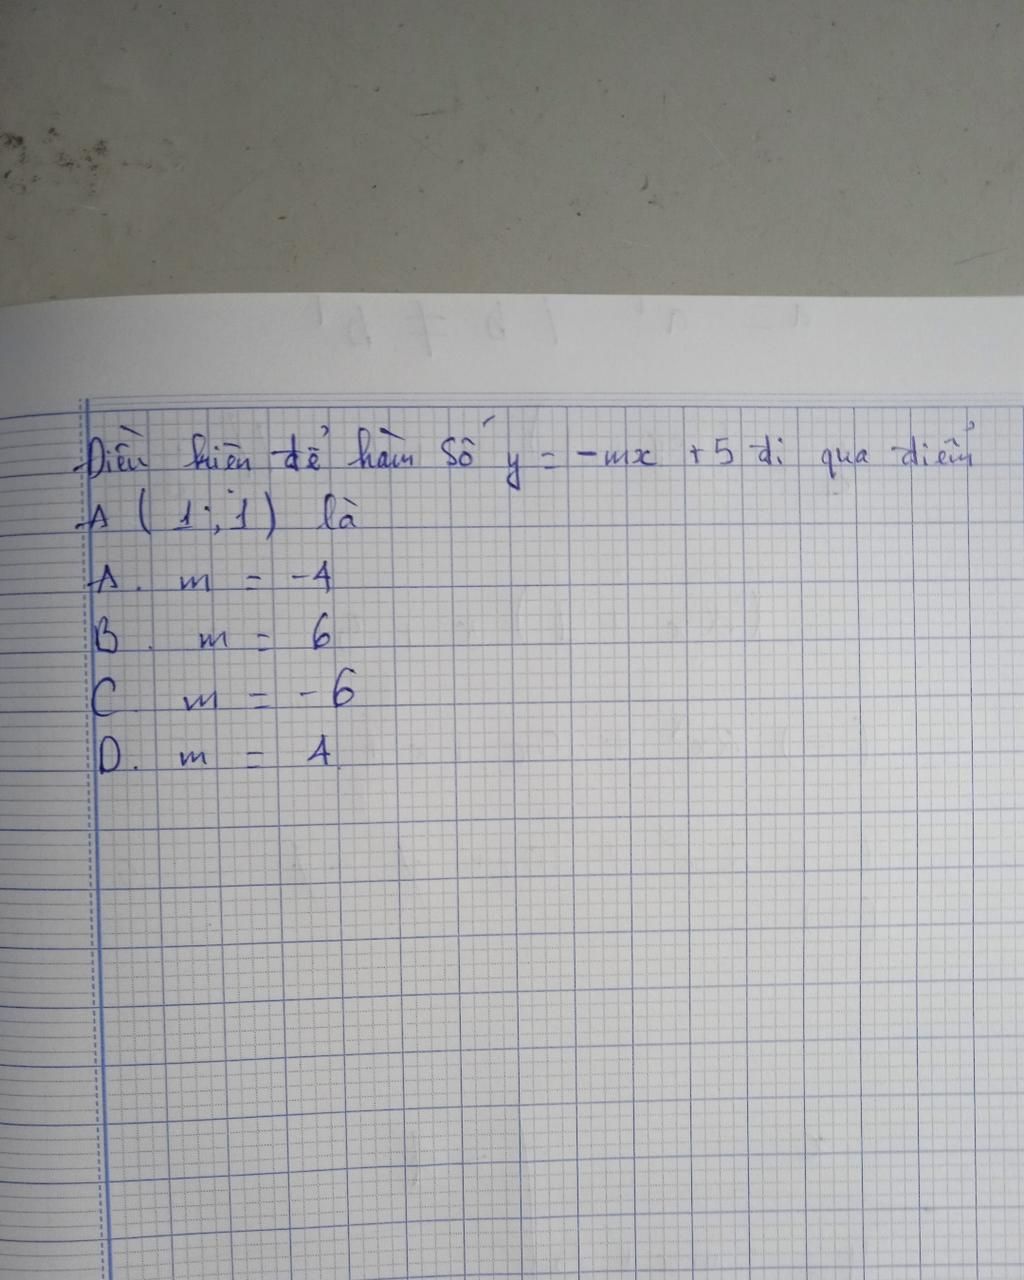 Điều kiện để hàm số y = -mx + 5 đi qua điểm
A ( 1 ; 1 ) là
A. m = -4
B. m = 6
C m = -6
D. m = 4